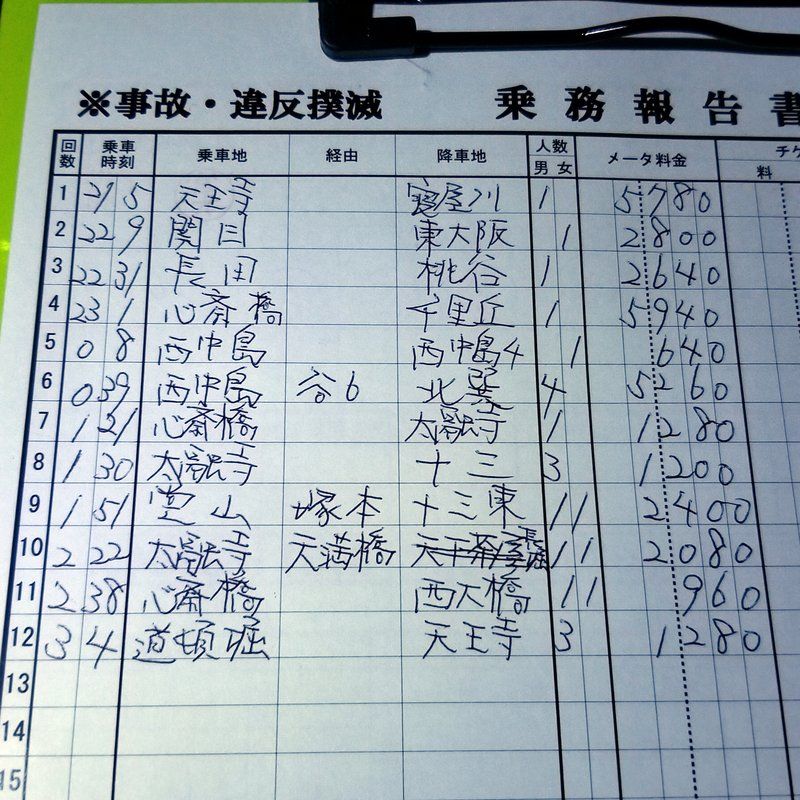 ※事故・違反撲滅 乗務報告書
回数 乗車時刻 乗車地 経由 降車地 人数 男 女 メータ料金 チケ 料
1 21 5 天王寺 寝屋川 1 5780
2 22 9 関目 東大阪 1 2800
3 22 31 長田 桃谷 1 2640
4 23 1 心斎橋 千里丘 1 5940
5 0 8 西中島 西中島4 1 640
6 0 39 西中島 谷6 北巽 4 5260
7 1 21 心斎橋 太融寺 1 1280
8 1 30 太融寺 十三 3 1200
9 1 51 堂山 塚本 十三東 1 1 2400
10 2 22 太融寺 天満橋 天下茶屋 長堀 1 1 2080
11 2 38 心斎橋 西大橋 1 1 960
12 3 4 道頓堀 天王寺 3 1280
13
14
15